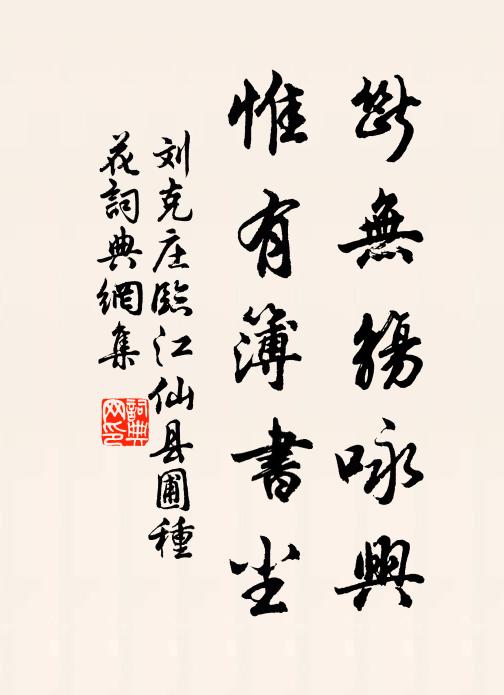 斷無觴咏興
惟有簿書尘
刘克庄臨江仙县圃種
花詞典網集
詞典网印